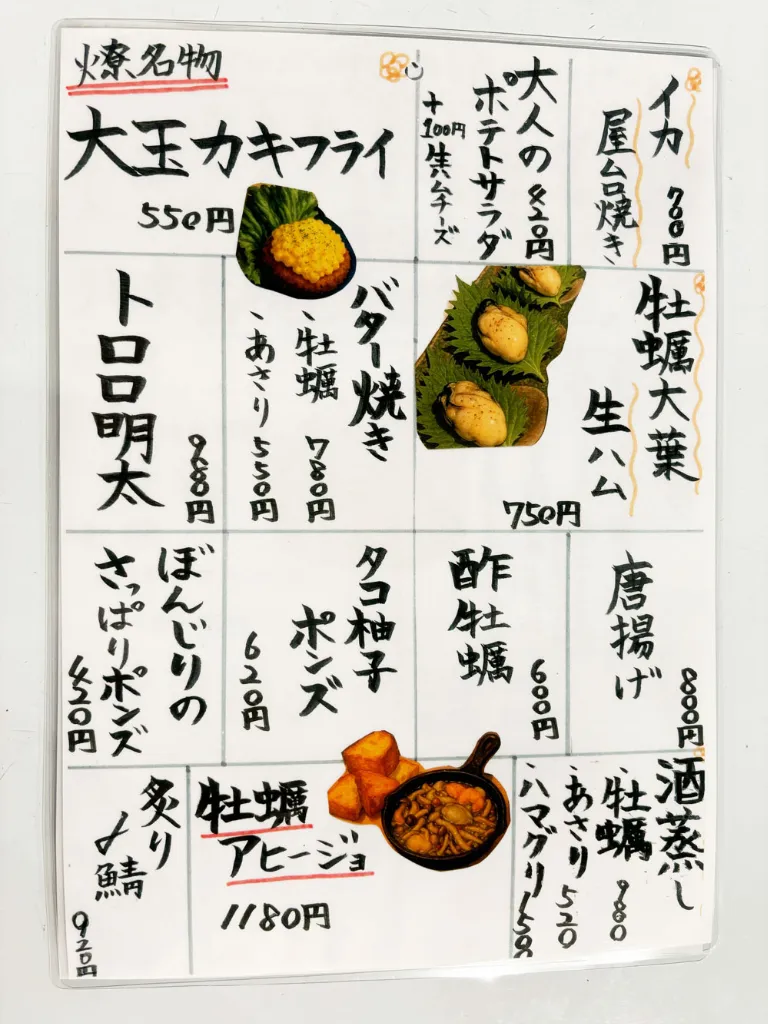 燎名物
大玉カキフライ
550円
大人の
ポテトサラダ
420円
+100円
生ハムチーズ
イカ
屋台焼き
700円
トロロ明太
980円
バター焼き
・牡蠣 780円
・あさり 550円
牡蠣大葉
生ハム
750円
ぼんじりの
さっぱりポンズ
420円
タコ柚子
ポンズ
620円
酢牡蠣
600円
唐揚げ
800円
炙り
〆鯖
920円
牡蠣
アヒージョ
1180円
酒蒸し
・牡蠣 980
・あさり 520
・ハマグリ